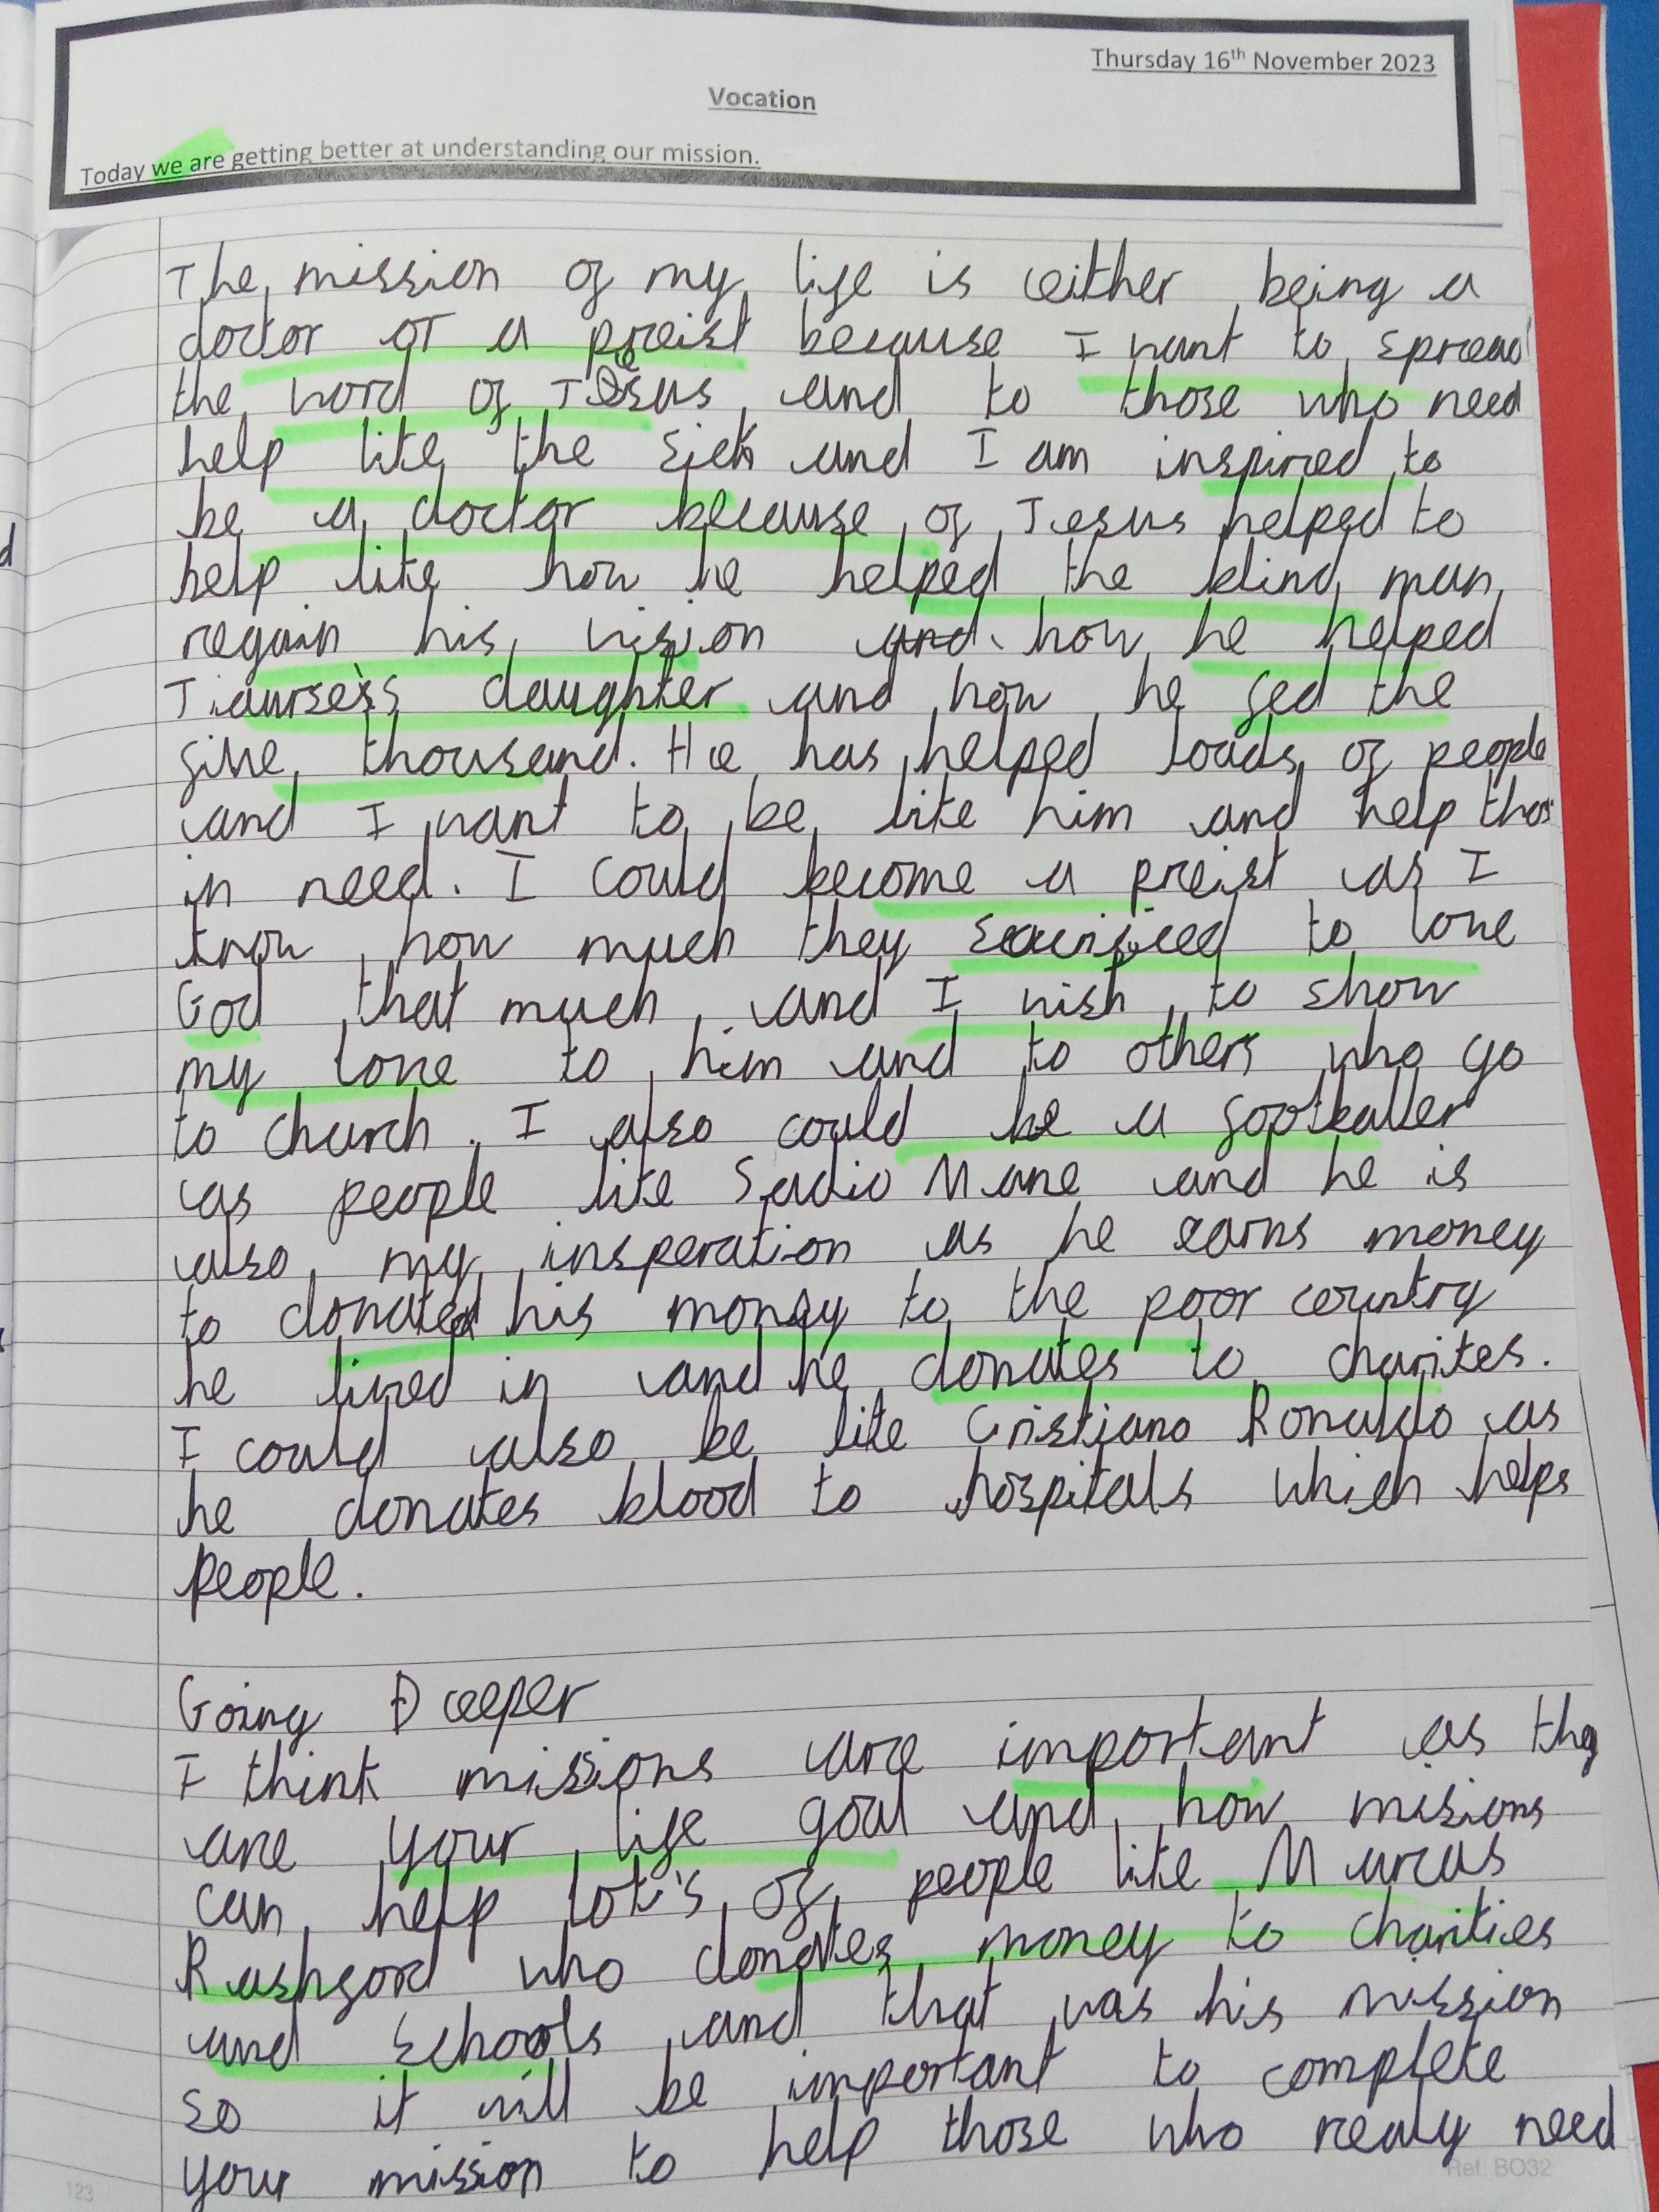 Thursday 16th November 2023
Vocation
Today we are getting better at understanding our mission.
The mission of my life is either being a
doctor or a preist because I want to spread
the word of Jesus and to those who need
help like the sick and I am inspired to
be a doctor because of Jesus helped to
help like how he helped the blind man
regain his vision and how he helped
daughter and how he fed the
five thousand. He has helped loads of people
and I want to be like him and help thos
in need. I could become a preist as I
know how much they to love
God that much and I wish to show
my love to him and to others who go
to church. I also could be a footballer
as people like Sadio Mane and he is
also my insperation as he earns money
to donated his money to the poor country
he lived in and he donates to charites.
I could also be like Cristiano Ronaldo as
he donates blood to hospitals which helps
people.
Going Deeper
I think missions are important as they
are your life goal and how misions
can help lot's of people like Marcus
Rashford who donates money to charities
and schools and that was his mission
so it will be important to complete
your mission to help those who realy need
123
Ref: BO32